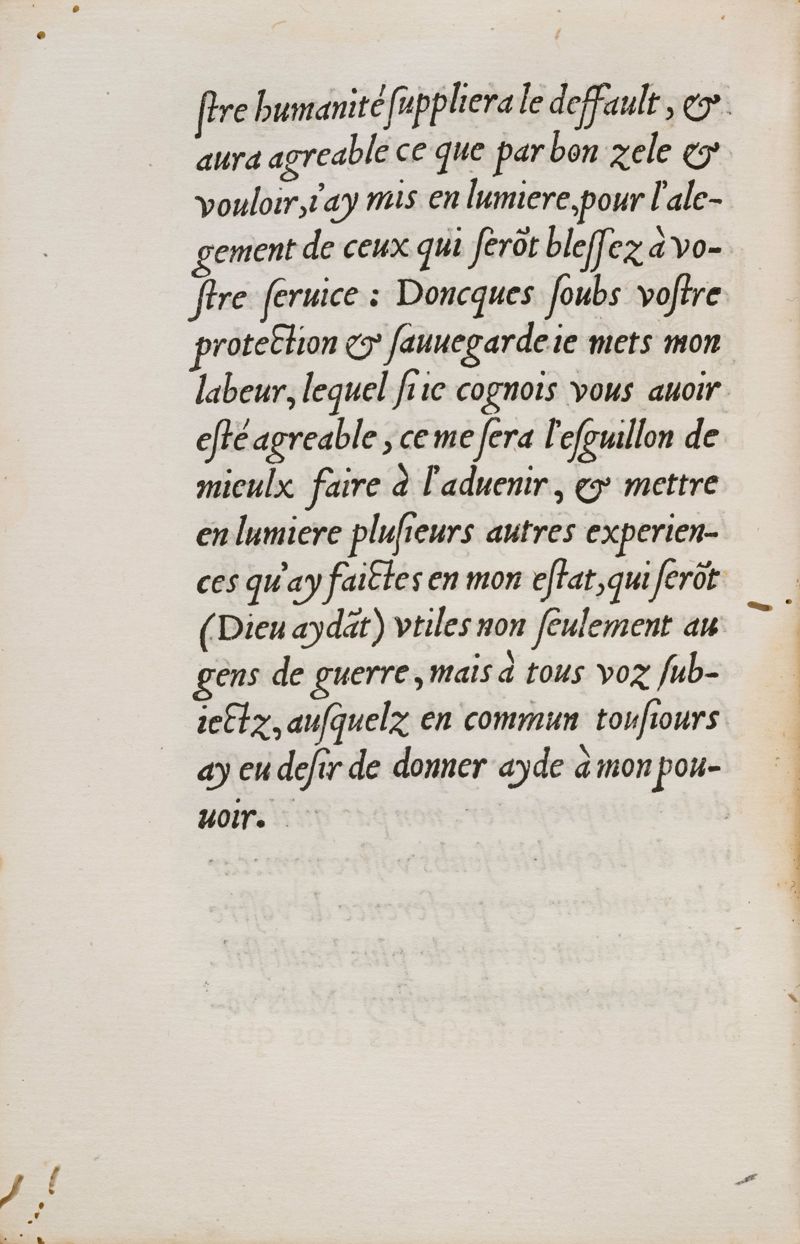 ſtre humanité ſuppliera le deffault, &
aura agreable ce que par bon zele &
vouloir, i'ay mis en lumiere, pour l'ale-
gement de ceux qui ſerõt bleſſez à vo-
ſtre ſeruice : Doncques ſoubs voſtre
protection & ſauuegarde ie mets mon
labeur, lequel ſi ie cognois vous auoir
eſté agreable, ce me ſera l'eſguillon de
mieulx faire à l'aduenir, & mettre
en lumiere pluſieurs autres experien-
ces qu'ay faictes en mon eſtat, qui ſerõt
(Dieu aydãt) vtiles non ſeulement au
gens de guerre, mais à tous voz ſub-
iectz, auſquelz en commun touſiours
ay eu deſir de donner ayde à mon pou-
uoir.